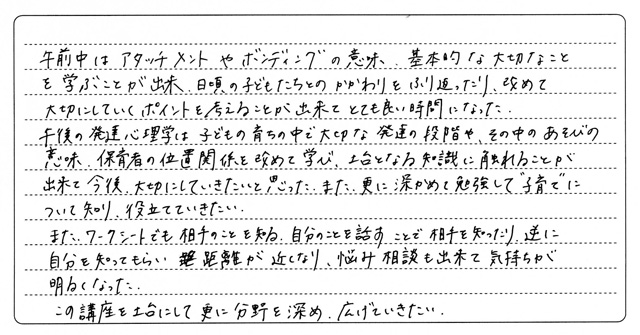 午前中は アタッチメント や ボンディング の意味、基本的な大切なこと
を学ぶことが出来、日頃の子どもたちとの かかわりを ふり返ったり、改めて
大切にしていく ポイントを考えることが出来て とても良い時間になった。
午後の発達心理学は 子どもの育ちの中で大切な 発達の段階や、その中のあそびの
意味、保育者の位置関係を改めて学び、土台となる知識に触れることが
出来て 今後、大切にしていきたいと思った。また、更に深かめて勉強して"子育て"に
ついて知り、役立てていきたい。
また、ワークシートでも 相手のことを知る、自分のことを話す ことで 相手を知ったり、逆に
自分を知ってもらい 距離が 近くなり、悩み相談も出来て 気持ちが
明るくなった。
この講座を土台にして 更に分野を深め、広げていきたい。